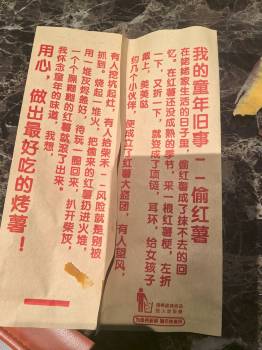 我的童年旧事--偷红薯
在姥姥家生活的日子里，偷红薯成了抹不去的回
忆。在红薯还没成熟的季节，来一根红薯梗，左折
一下，又折一下，就变成了项链，耳环，给女孩子
戴上，美美哒
约几个小伙伴，便成立了红薯大盗团，有人望风，
有人挖坑起灶，有人拾柴禾--风险就是别被
抓到。烧起一堆火，把偷来的红薯扔进火堆，
用一堆灰烬盖好，待玩一圈回来，扒开柴灰，
一个个黑糊糊的红薯就滚了出来。
我怀念童年的味道，我想，
用心，做出最好吃的烤薯！